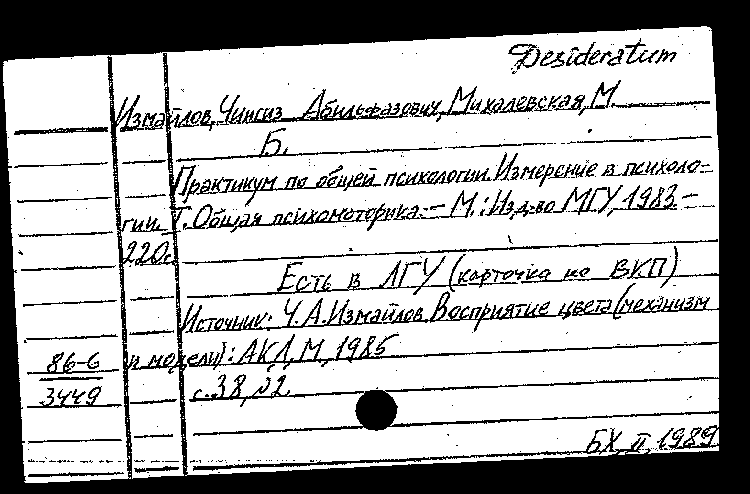 Desideratum
Измайлов, Чингиз Абильфазович, Михалевская, М.
Б.
Практикум по общей психологии. Измерение в психоло-
гии. Т. Общая психомоторика. - М.: Изд-во МГУ, 1983. -
220с.
Есть в ЛГУ (карточка на ВКП)
Источник: Ч.А. Измайлов. Восприятие цвета (механизм
и модели): АКД, М., 1985
86-6
3449
с. 38, №2.
БХ, II, 1989